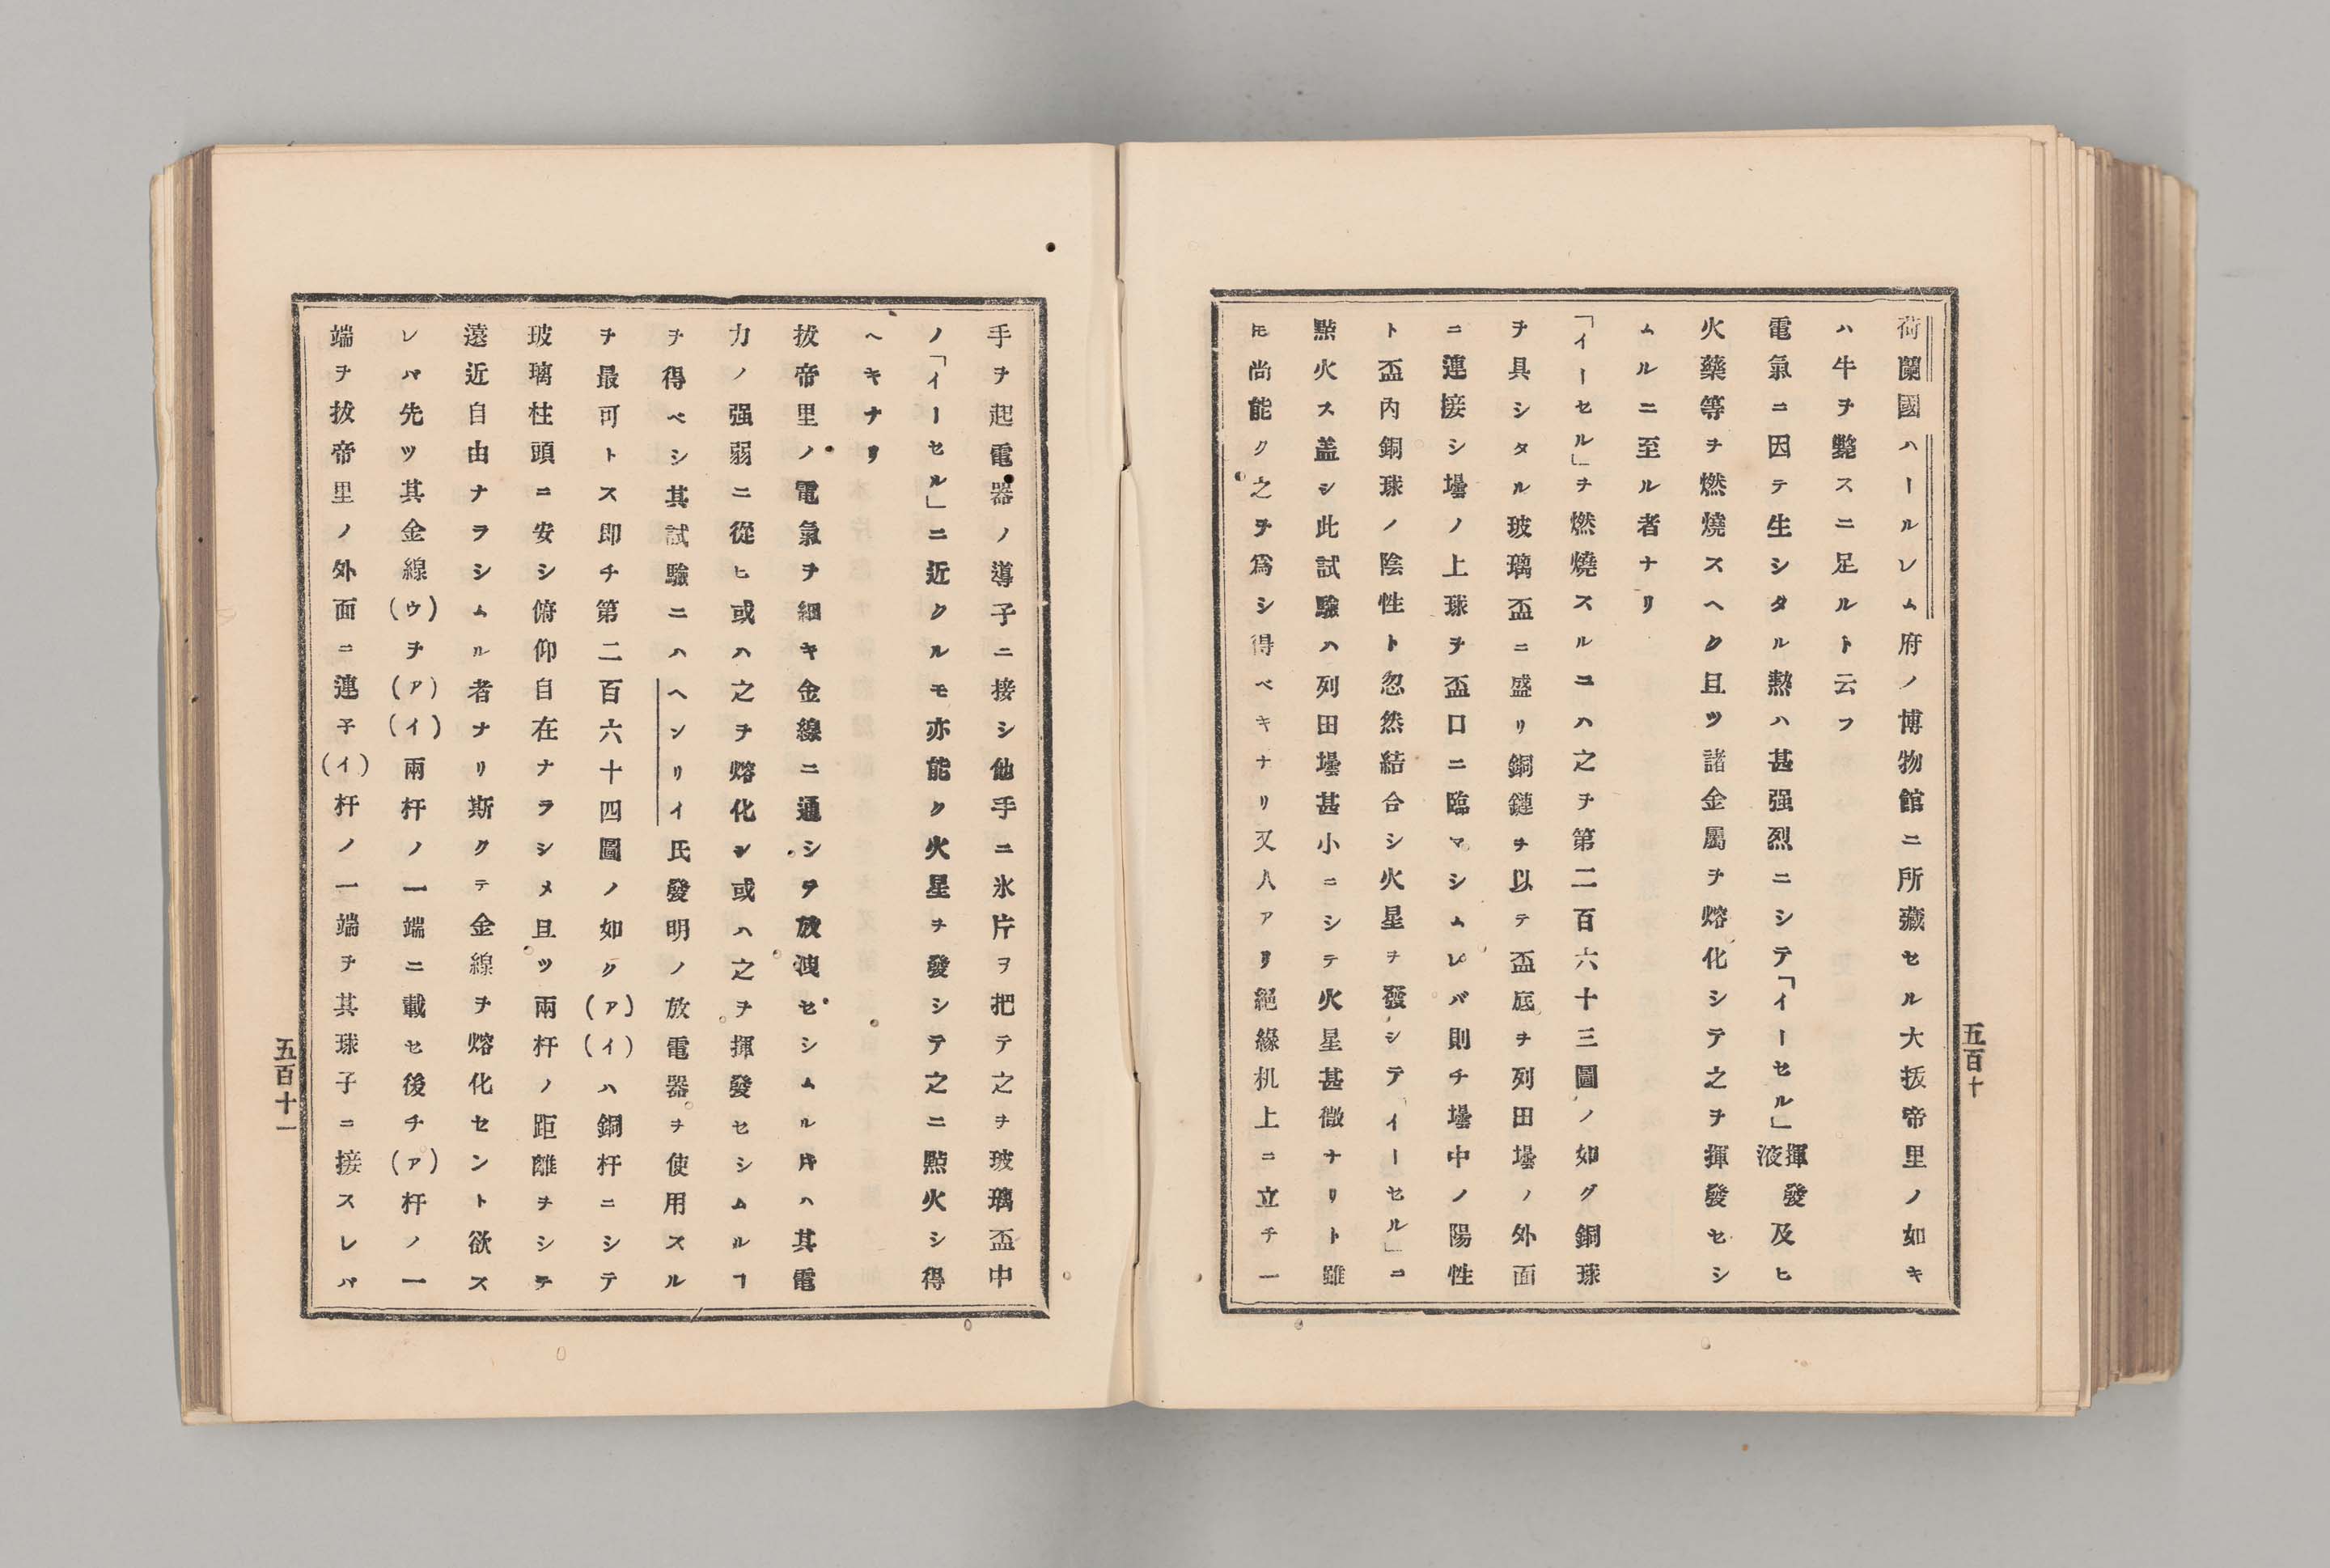 荷蘭國ハールレム府ノ博物館ニ所藏セル大拔帝里ノ如キ
ハ牛ヲ斃スニ足ルト云フ
電氣ニ因テ生シタル熱ハ甚强烈ニシテ「イーセル」揮發液及ヒ
火藥等ヲ燃燒スヘク且ツ諸金屬ヲ熔化シテ之ヲ揮發セシ
ムルニ至ル者ナリ
「イーセル」ヲ燃燒スルニハ之ヲ第二百六十三圖ノ如ク銅球
ヲ具シタル玻璃盃ニ盛リ銅鏈ヲ以テ盃底ヲ列田壜ノ外面
ニ連接シ壜ノ上球ヲ盃口ニ臨マシムレバ則チ壜中ノ陽性
ト盃內銅球ノ陰性ト忽然結合シ火星ヲ發シテ「イーセル」ニ
㸃火ス盖シ此試驗ハ列田壜甚小ニシテ火星甚微ナリト雖
モ尚能ク之ヲ爲シ得ベキナリ又人アリ絕緣机上ニ立チ一
五百十
手ヲ起電器ノ導子ニ接シ他手ニ氷片ヲ把テ之ヲ玻璃盃中
ノ「イーセル」ニ近クルモ亦能ク火星ヲ發シテ之ニ㸃火シ得
ヘキナリ
拔帝里ノ電氣ヲ細キ金線ニ通シヲ放洩セシムル片ハ其電
力ノ强弱ニ從ヒ或ハ之ヲ熔化シ或ハ之ヲ揮發セシムルヿ
ヲ得ベシ其試驗ニハヘンリイ氏發明ノ放電器ヲ使用スル
ヲ最可トス即チ第二百六十四圖ノ如ク(ア)(イ)ハ銅杆ニシテ
玻璃柱頭ニ安シ俯仰自在ナラシメ且ツ兩杆ノ距離ヲシテ
遠近自由ナヲシムル者ナリ斯クテ金線ヲ熔化セント欲ス
レバ先ツ其金線(ウ)ヲ(ア)(イ)兩杆ノ一端ニ載セ後チ(ア)杆ノ一
端ヲ拔帝里ノ外面ニ連子(イ)杆ノ一端ヲ其球子ニ接スレバ
五百十一